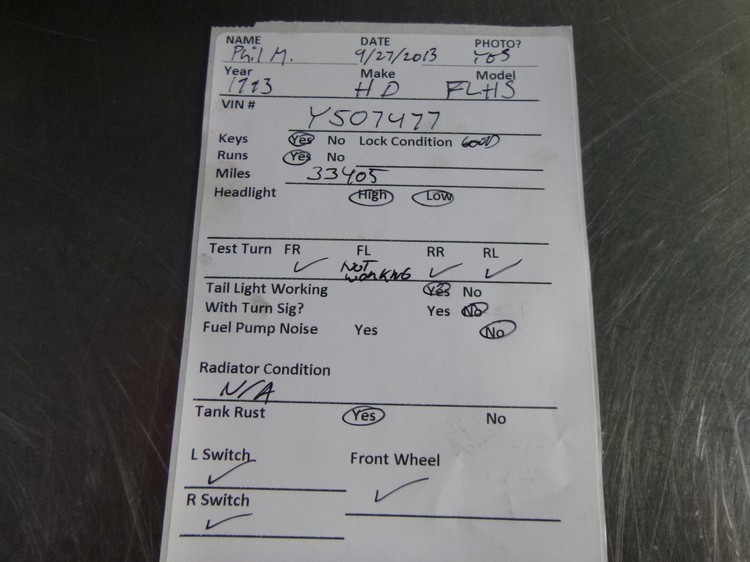 NAME DATE PHOTO?
Phil M. 9/27/2013 YES
Year Make Model
1993 HD FLHS
VIN #
Y507477
Keys Yes No Lock Condition GOOD
Runs Yes No
Miles 33405
Headlight High Low
Test Turn FR FL RR RL
✓ NOT WORKING ✓ ✓
Tail Light Working Yes No
With Turn Sig? Yes No
Fuel Pump Noise Yes No
Radiator Condition
N/A
Tank Rust Yes No
L Switch Front Wheel
✓ ✓
R Switch
✓